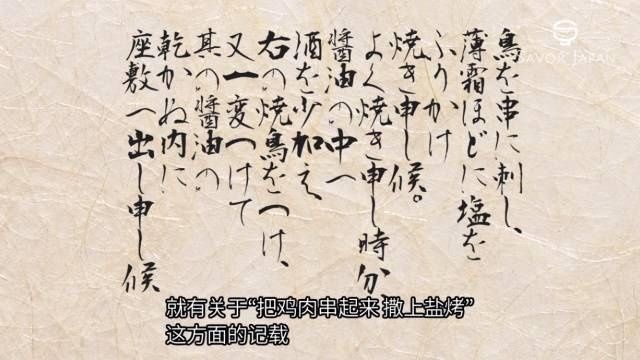 鳥を串に刺し、
薄霜ほどに塩を
ふりかけ
焼き申し候。
よく焼き申し時分、
醤油の中へ
酒を少加え、
右の焼鳥をつけ、
又一変つけて
其の醤油の
乾かぬ内に
座敷へ出し申し候
SAVOR JAPAN
就有关于“把鸡肉串起来 撒上盐烤”
这方面的记载